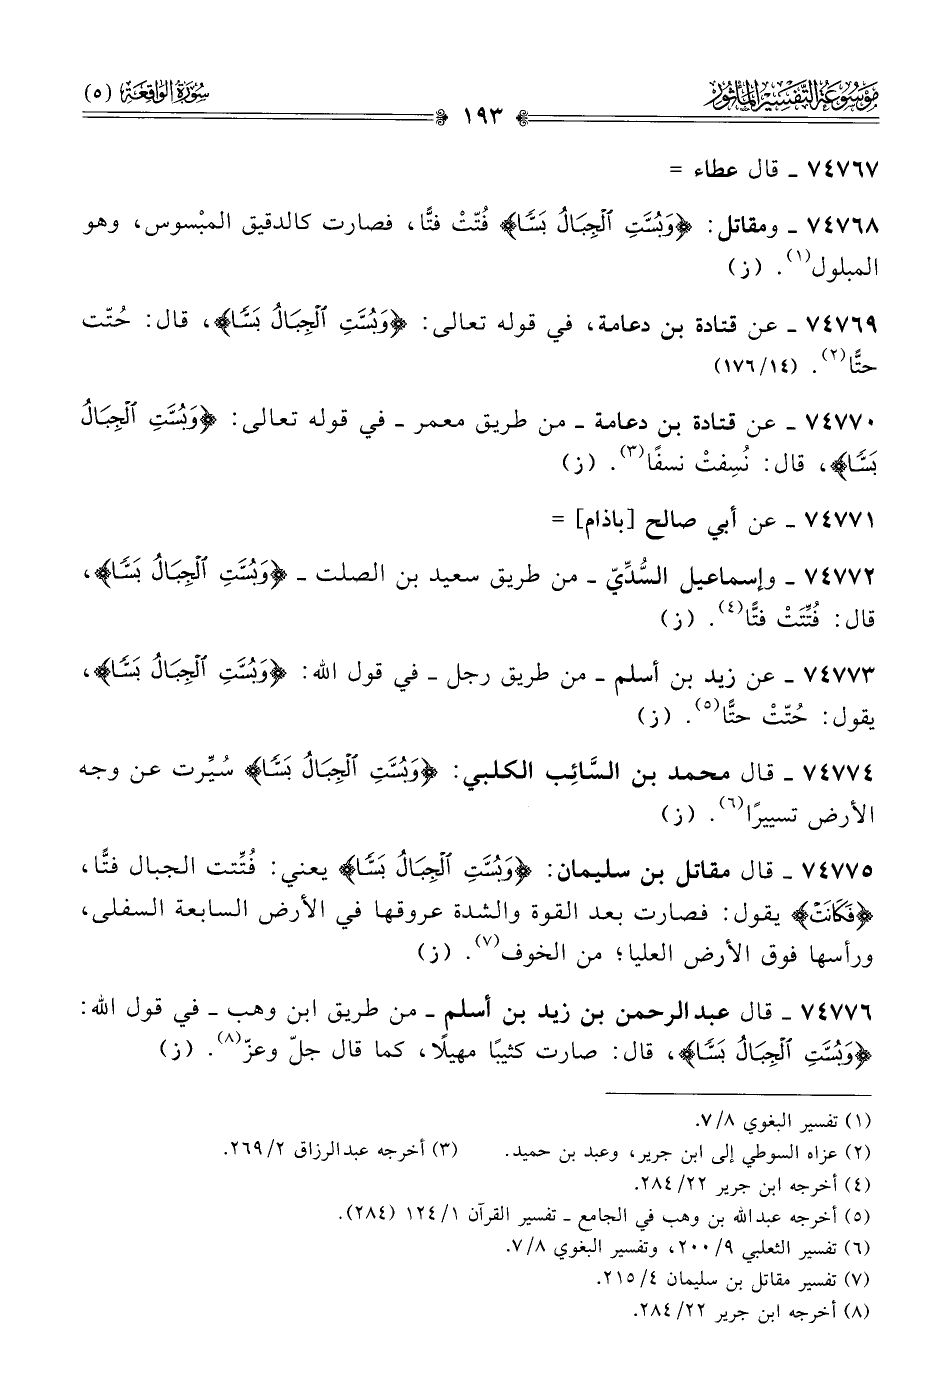 مَوْسُوعَةُ التَّفْسِيرِ المَأْثُور
سُورَةُ الوَاقِعَة (٥)
١٩٣
٧٤٧٦٧ ـ قال عطاء =
٧٤٧٦٨ ـ ومقاتل: ﴿وَبُسَّتِ ٱلْجِبَالُ بَسًّا﴾ فُتّتْ فتًّا، فصارت كالدقيق المبْسوس، وهو
المبلول(١). (ز)
٧٤٧٦٩ ـ عن قتادة بن دعامة، في قوله تعالى: ﴿وَبُسَّتِ ٱلْجِبَالُ بَسًّا﴾، قال: حُتّت
حتًّا(٢). (١٧٦/١٤)
٧٤٧٧٠ ـ عن قتادة بن دعامة ـ من طريق معمر ـ في قوله تعالى: ﴿وَبُسَّتِ ٱلْجِبَالُ
بَسًّا﴾، قال: نُسِفتْ نسفًا(٣). (ز)
٧٤٧٧١ ـ عن أبي صالح [باذام] =
٧٤٧٧٢ ـ وإسماعيل السُّدِّيّ ـ من طريق سعيد بن الصلت ـ ﴿وَبُسَّتِ ٱلْجِبَالُ بَسًّا﴾،
قال: فُتِّتَتْ فتًّا(٤). (ز)
٧٤٧٧٣ ـ عن زيد بن أسلم ـ من طريق رجل ـ في قول الله: ﴿وَبُسَّتِ ٱلْجِبَالُ بَسًّا﴾،
يقول: حُتّتْ حتًّا(٥). (ز)
٧٤٧٧٤ ـ قال محمد بن السَّائِب الكلبي: ﴿وَبُسَّتِ ٱلْجِبَالُ بَسًّا﴾ سُيِّرت عن وجه
الأرض تسييرًا(٦). (ز)
٧٤٧٧٥ ـ قال مقاتل بن سليمان: ﴿وَبُسَّتِ ٱلْجِبَالُ بَسًّا﴾ يعني: فُتِّتت الجبال فتًّا،
﴿فَكَانَتْ﴾ يقول: فصارت بعد القوة والشدة عروقها في الأرض السابعة السفلى،
ورأسها فوق الأرض العليا؛ من الخوف(٧). (ز)
٧٤٧٧٦ ـ قال عبدالرحمن بن زيد بن أسلم ـ من طريق ابن وهب ـ في قول الله:
﴿وَبُسَّتِ ٱلْجِبَالُ بَسًّا﴾، قال: صارت كثيبًا مهيلًا، كما قال جلّ وعزّ(٨). (ز)
(١) تفسير البغوي ٧/٨.
(٢) عزاه السوطي إلى ابن جرير، وعبد بن حميد. (٣) أخرجه عبدالرزاق ٢٦٩/٢.
(٤) أخرجه ابن جرير ٢٨٤/٢٢.
(٥) أخرجه عبدالله بن وهب في الجامع ـ تفسير القرآن ١٢٤/١ (٢٨٤).
(٦) تفسير الثعلبي ٢٠٠/٩، وتفسير البغوي ٧/٨.
(٧) تفسير مقاتل بن سليمان ٢١٥/٤.
(٨) أخرجه ابن جرير ٢٨٤/٢٢.